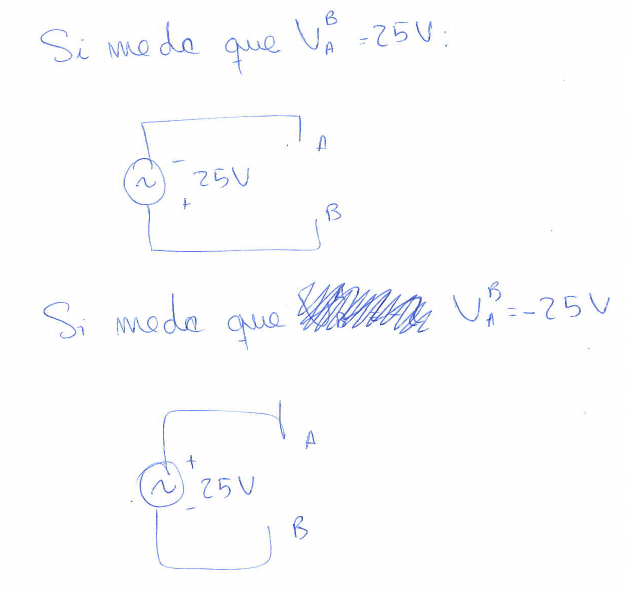 Si me da que V_A^B = 25V:
-
25V
+
A
B
Si me da que V_A^B = -25V
+
25V
-
A
B